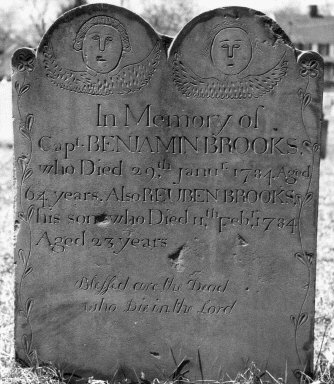 In Memory of
Capt. BENJAMIN BROOKS,
who Died 29.th Janur.y 1784, Aged
64 years. Also REUBEN BROOKS,
his son, who Died 11.th Feb.r 1784
Aged 23 years
Blessed are the Dead
who Die in the Lord